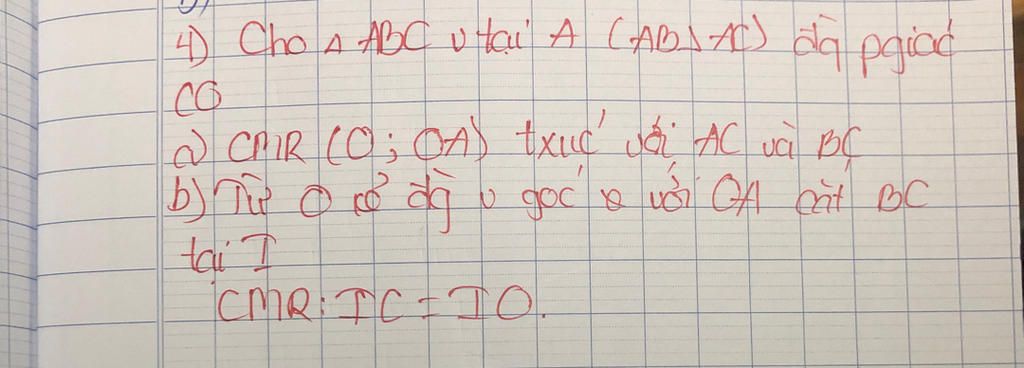 4) Cho Δ ABC v tại A (AB > AC) đg pgiác
CO
a) CMR (O; OA) txúc với AC và BC
b) Từ O kẻ đg v góc với OA cắt BC
tại I
CMR: IC = IO.